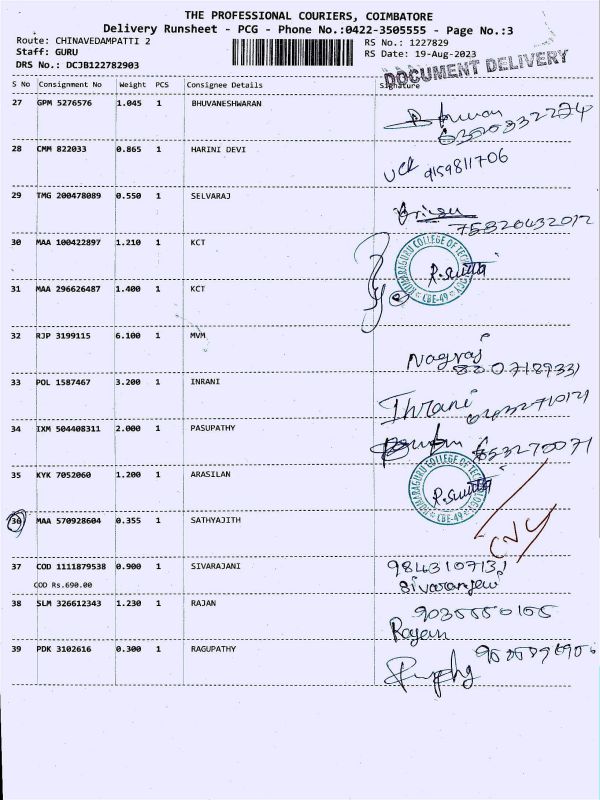 THE PROFESSIONAL COURIERS, COIMBATORE
Delivery Runsheet - PCG - Phone No.:0422-3505555 - Page No.:3
Route: CHINAVEDAMPATTI 2
RS No.: 1227829
Staff: GURU
RS Date: 19-Aug-2023
DRS No.: DCJB122782903
DOCUMENT DELIVERY
S No Consignment No Weight PCS Consignee Details Signature
27 GPM 5276576 1.045 1 BHUVANESHWARAN
28 CMM 822033 0.865 1 HARINI DEVI
9159811706
29 TMG 200478089 0.550 1 SELVARAJ
30 MAA 100422897 1.210 1 KCT
KUMARAGURU COLLEGE OF TECHNOLOGY
CBE-49
31 MAA 296626487 1.400 1 KCT
32 RJP 3199115 6.100 1 MVM
Nagraj
33 POL 1587467 3.200 1 INRANI
Ihrani
34 IXM 504408311 2.000 1 PASUPATHY
35 KYK 7052060 1.200 1 ARASILAN
KUMARAGURU COLLEGE OF TECHNOLOGY
CBE-49
36 MAA 570928604 0.355 1 SATHYAJITH
37 COD 1111879538 0.900 1 SIVARAJANI
9843107131
COD Rs.690.00
Sivaranjani
38 SLM 326612343 1.230 1 RAJAN
Rajan
39 PDK 3102616 0.300 1 RAGUPATHY